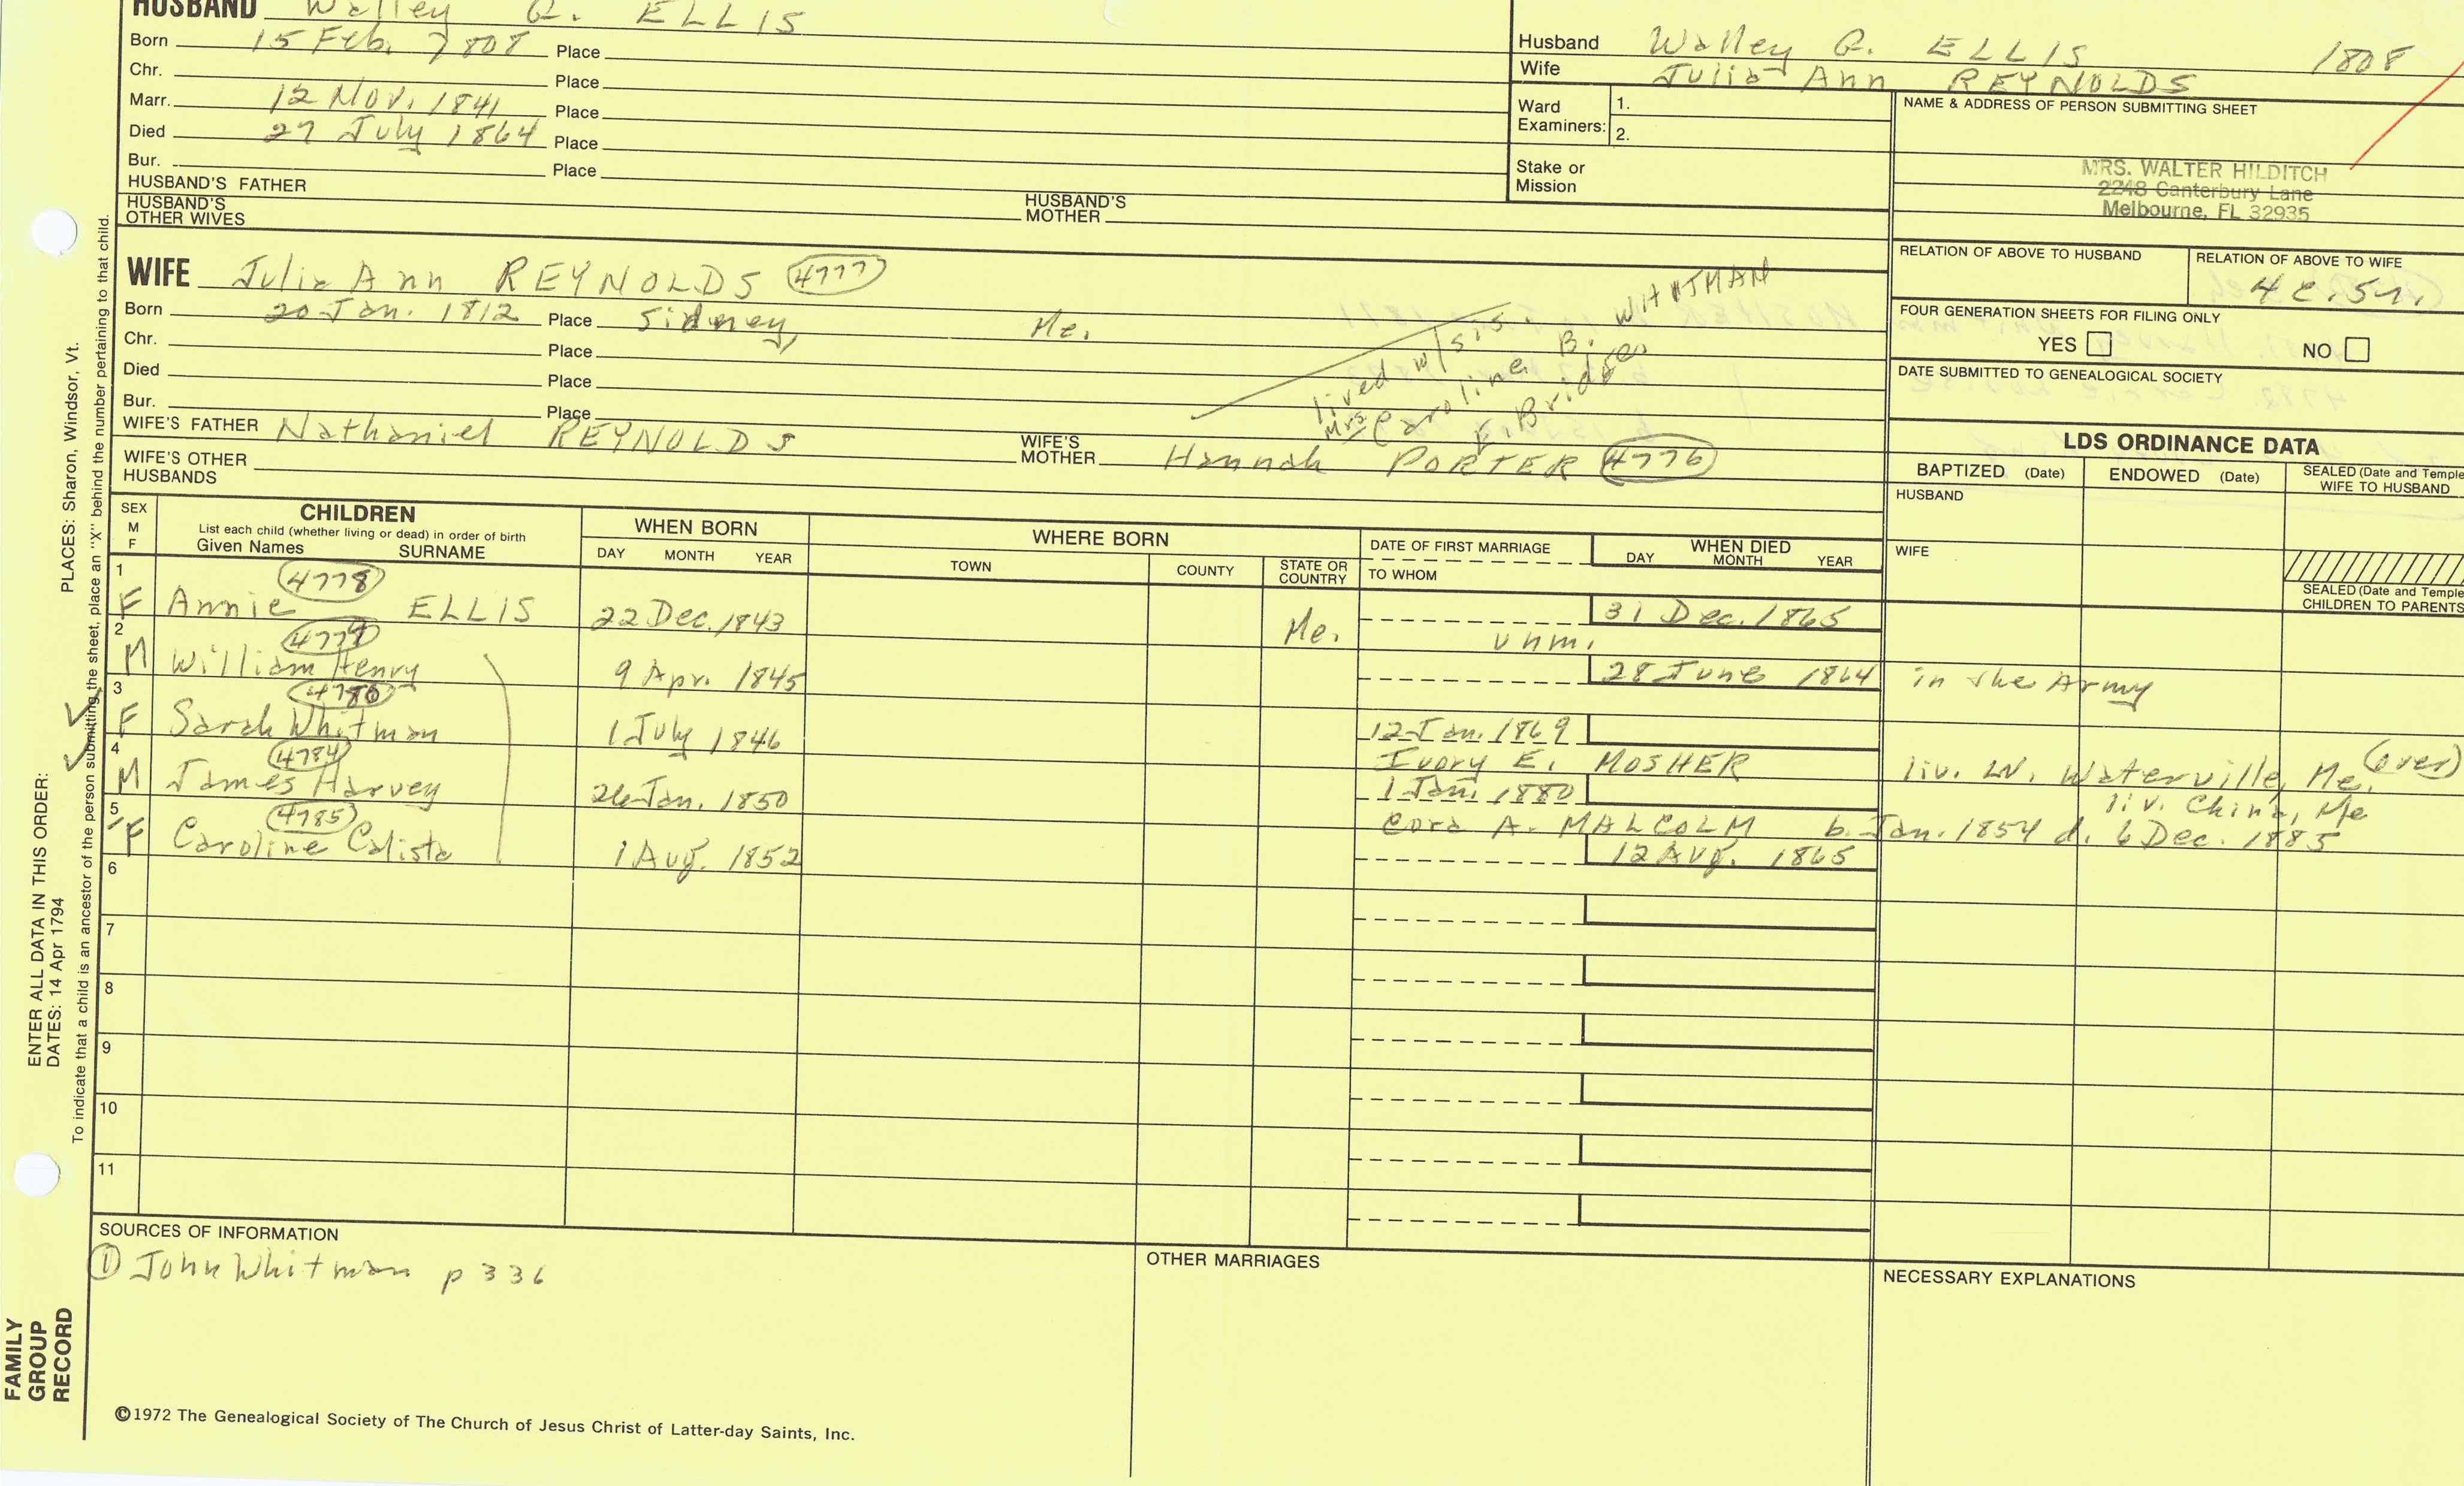 HUSBAND Walley G. ELLIS
Born 15 Feb. 1808 Place
Chr. Place
Marr. 12 Nov. 1841 Place
Died 27 July 1864 Place
Bur. Place
HUSBAND'S FATHER
HUSBAND'S MOTHER
HUSBAND'S OTHER WIVES
Husband Walley G. ELLIS 1808
Wife Julia Ann REYNOLDS
Ward Examiners: 1.
2.
Stake or Mission
NAME & ADDRESS OF PERSON SUBMITTING SHEET
MRS. WALTER HILDITCH
2248 Canterbury Lane
Melbourne, FL 32935
RELATION OF ABOVE TO HUSBAND
RELATION OF ABOVE TO WIFE
4c.5r.
FOUR GENERATION SHEETS FOR FILING ONLY
YES NO
DATE SUBMITTED TO GENEALOGICAL SOCIETY
WIFE Julia Ann REYNOLDS 4777
Born 20 Jan. 1812 Place Sidney, Me.
Chr. Place
Died Place
Bur. Place
lived w/sis.
Mrs Caroline B. WHITMAN
E. Bridge.
WIFE'S FATHER Nathaniel REYNOLDS
WIFE'S MOTHER Hannah PORTER 4776
WIFE'S OTHER HUSBANDS
LDS ORDINANCE DATA
BAPTIZED (Date) ENDOWED (Date) SEALED (Date and Temple
WIFE TO HUSBAND
HUSBAND
WIFE
SEALED (Date and Temple
CHILDREN TO PARENTS
SEX
M
F
CHILDREN
List each child (whether living or dead) in order of birth
Given Names SURNAME
WHEN BORN
DAY MONTH YEAR
WHERE BORN
TOWN COUNTY STATE OR COUNTRY
DATE OF FIRST MARRIAGE
TO WHOM
WHEN DIED
DAY MONTH YEAR
1 4778
F Annie ELLIS 22 Dec. 1843 Me. unm. 31 Dec. 1865
2 4779
M William Henry 9 Apr. 1845 28 June 1864 in the Army
3 4780
F Sarah Whitman 1 July 1846 12 Jan. 1869
Ivory E. MOSHER liv. W. Waterville, Me. (over)
4 4784
M James Harvey 26 Jan. 1850 1 Jan. 1880 liv. China, Me
Cora A. MALCOLM b. Jan. 1854 d. 6 Dec. 1885
5 4785
F Caroline Calista 1 Aug. 1852 12 Aug. 1865
6
7
8
9
10
11
SOURCES OF INFORMATION
① John Whitman p 336
OTHER MARRIAGES
NECESSARY EXPLANATIONS
©1972 The Genealogical Society of The Church of Jesus Christ of Latter-day Saints, Inc.
FAMILY
GROUP
RECORD
ENTER ALL DATA IN THIS ORDER:
DATES: 14 Apr 1794
PLACES: Sharon, Windsor, Vt.
To indicate that a child is an ancestor of the person submitting the sheet, place an "X" behind the number pertaining to that child.